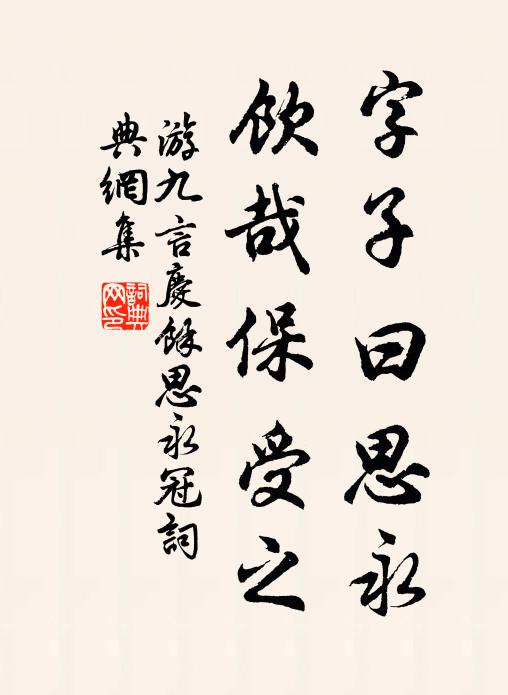 字子曰思永
飲哉保受之
游九言慶餘思永冠詞
典網集
詞典网印